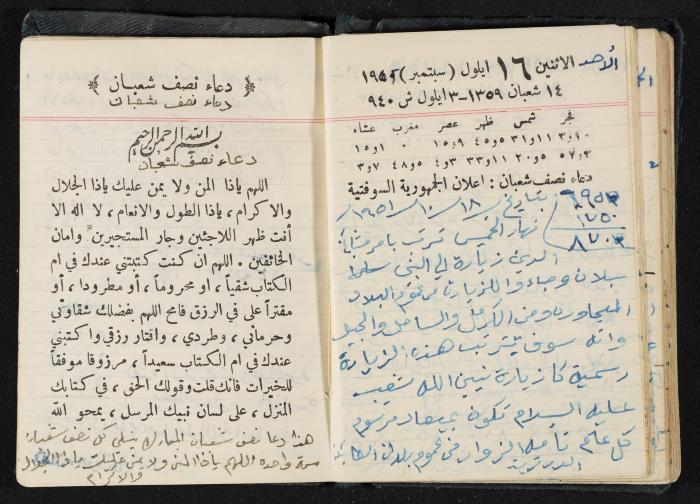 ﴿ دعاء نصف شعبان ﴾
دعاء نصف شعبان
بسم الله الرحمن الرحيم
دعاء نصف شعبان
اللهم ياذا المن ولا يمن عليك ياذا الجلال
والاكرام ، ياذا الطول والانعام ، لا اله الا
أنت ظهر اللاجئين وجار المستجيرين وامان
الخائفين . اللهم ان كنت كتبتني عندك في ام
الكتاب شقياً ، او محروماً ، أو مطروداً ، أو
مقتراً على في الرزق فامح اللهم بفضلك شقاوتي
وحرماني ، وطردي ، واقتار رزقي واكتبني
عندك في ام الكتاب سعيداً ، مرزوقا موفقاً
للخيرات فانك قلت وقولك الحق ، في كتابك
المنزل ، على لسان نبيك المرسل ، يمحو الله
هذا دعا نصف شعبان المبارك يتلى كل نصف شعبان
مرة واحده اللهم ياذا المن ولا يمن عليك ياذا الجلال
والاكرام
الأحد
الاثنين ١٦ ايلول (سبتمبر) ١٩٥١
١٤ شعبان ١٣٥٩-٣ ايلول ش ٩٤٠
فجر شمس ظهر عصر مغرب عشاء
دعاء نصف شعبان : اعلان الجمهورية السوفتية
بتاريخ ١٨/١٠/١٩٥١
نهار الخميس ترتب بامر مشايخ
الدين زيارة الى النبي سبلان
سبلان وجاء والزيارة من عموم البلاد
المجاوره ومن الكرمل والساحل والجبل
وانه سوف يترتب هذه الزيارة
رسمية كزيارة نبين الله شعيب
عليه السلام تكون بميعاد مرسوم
كل عام تأمه الزوار من عموم بلدان الطائفة
الدرزية